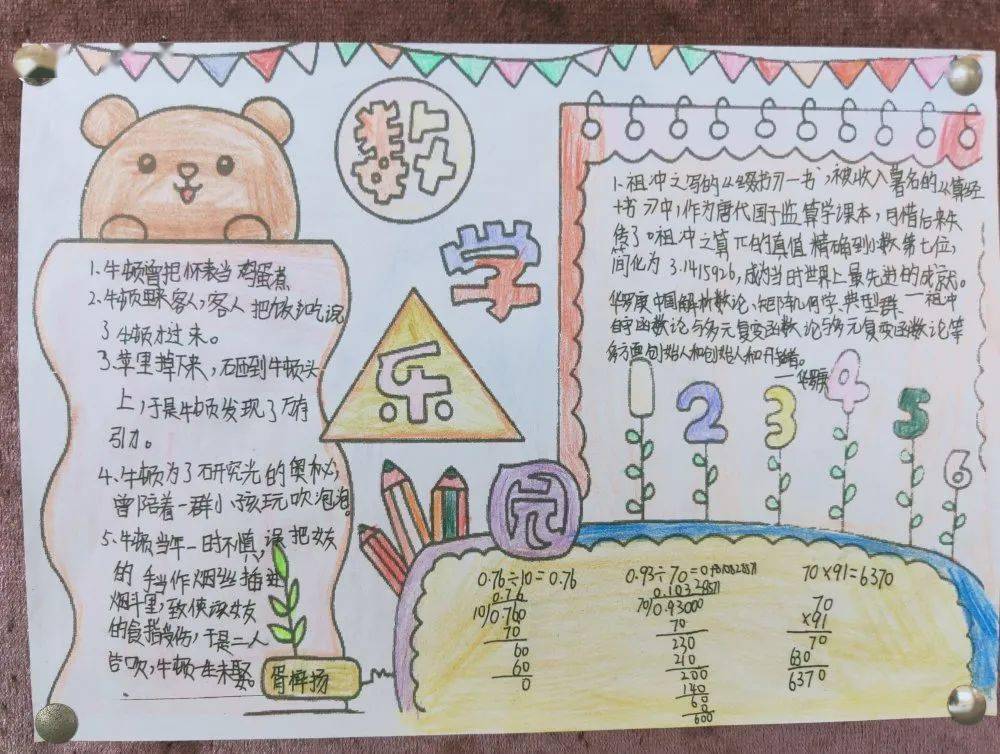 数
学
乐
园
1.牛顿曾把怀表当鸡蛋煮
2.牛顿 来客人,客人把饭 吃
了牛顿才过来。
3.苹里掉下来,石砸到牛顿头
上,于是牛顿发现了万有
引力。
4.牛顿为了研究光的奥秘,
曾陪着一群小孩玩吹泡泡。
5.牛顿当年一时不慎,误把女友
的手当作烟丝插进
烟斗里,致使该女友
的食指受伤,于是二人
告吹,牛顿一生未娶
胥梓扬
1.祖冲之写的《缀术》一书,被收入著名的《算经
十书》中,作为唐代国子监算学课本,可惜后来失
传了。祖冲之算π的真值精确到小数第七位,
简化为3.1415926,成为当时世界上最先进的成就。
——祖冲
华罗庚中国解析数论、矩阵几何学、典型群
自守函数论与多元复变函数论与多元复变函数论等
多方面创始人和创始人和开 者。
——华罗庚
2 3 4 5 6
0.76÷10=0.76
0.76
10/0.760
70
60
60
0
0.93÷70=
70/0.93000
70
230
210
200
140
60
0
600
70×91=6370
70
×91
70
630
6370